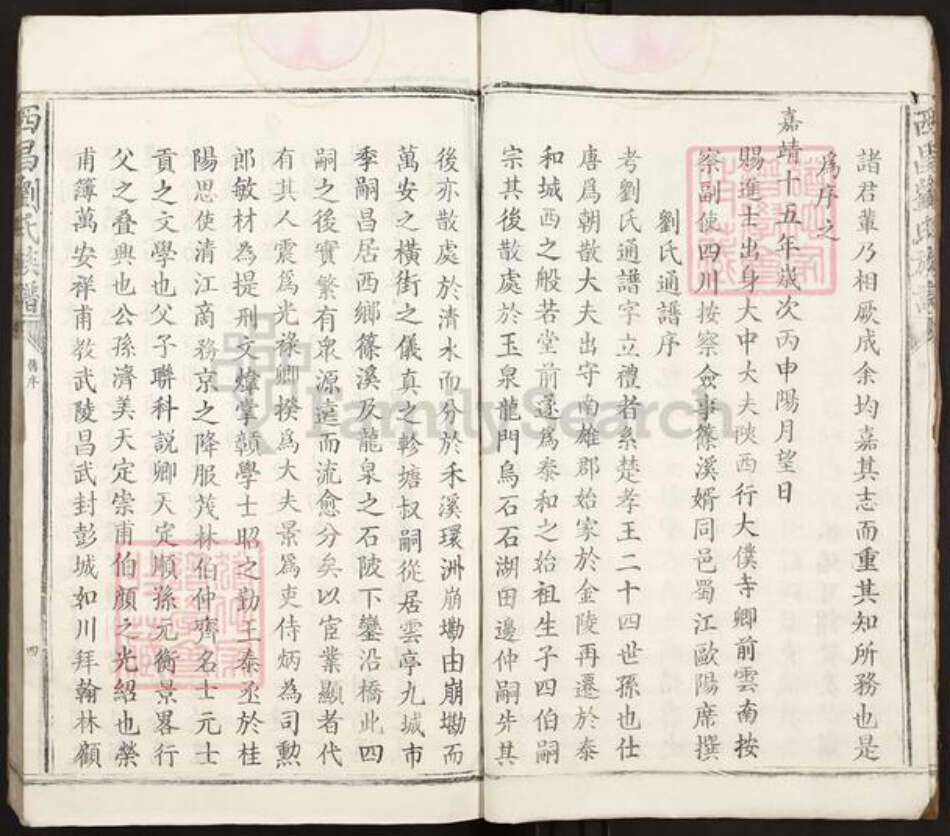 諸君輩乃相厥成余均嘉其志而重其知所務也是
為序之
嘉靖十五年歲次丙申陽月望日
賜進士出身大中大夫陝西行大僕寺卿前雲南按
察副使四川按察僉事篠溪婿同邑蜀江歐陽席撰
劉氏通譜序
考劉氏通譜字立禮者系楚孝王二十四世孫也仕
唐為朝散大夫出守南雄郡始家於金陵再遷於泰
和城西之般若堂前遂為泰和之始祖生子四伯嗣
宗其後散處於玉泉龍門烏石石湖田邊仲嗣先其
後亦散處於清水而分於禾溪環洲崩塅由崩塅而
萬安之橫街之儀真之軫塘叔嗣從居雲亭九城市
季嗣昌居西鄉篠溪及龍泉之石陂下鑾沿橋此四
嗣之後實繁有眾源遠而流愈分矣以宦業顯者代
有其人震為光祿卿揆為大夫景為吏侍炳為司勳
郎敏材為提刑文煒掌贛學士昭之勤王泰丞於桂
陽思使清江商務京之降服茂林伯仲齊名士元士
貢之文學也父子聯科說卿天定順孫元衡景畧行
父之叠興也公孫濟美天定崇甫伯顏之光紹也榮
甫簿萬安祥甫教武陵昌武封彭城如川拜翰林顧
西昌劉氏族譜
舊序
四
FamilySearch